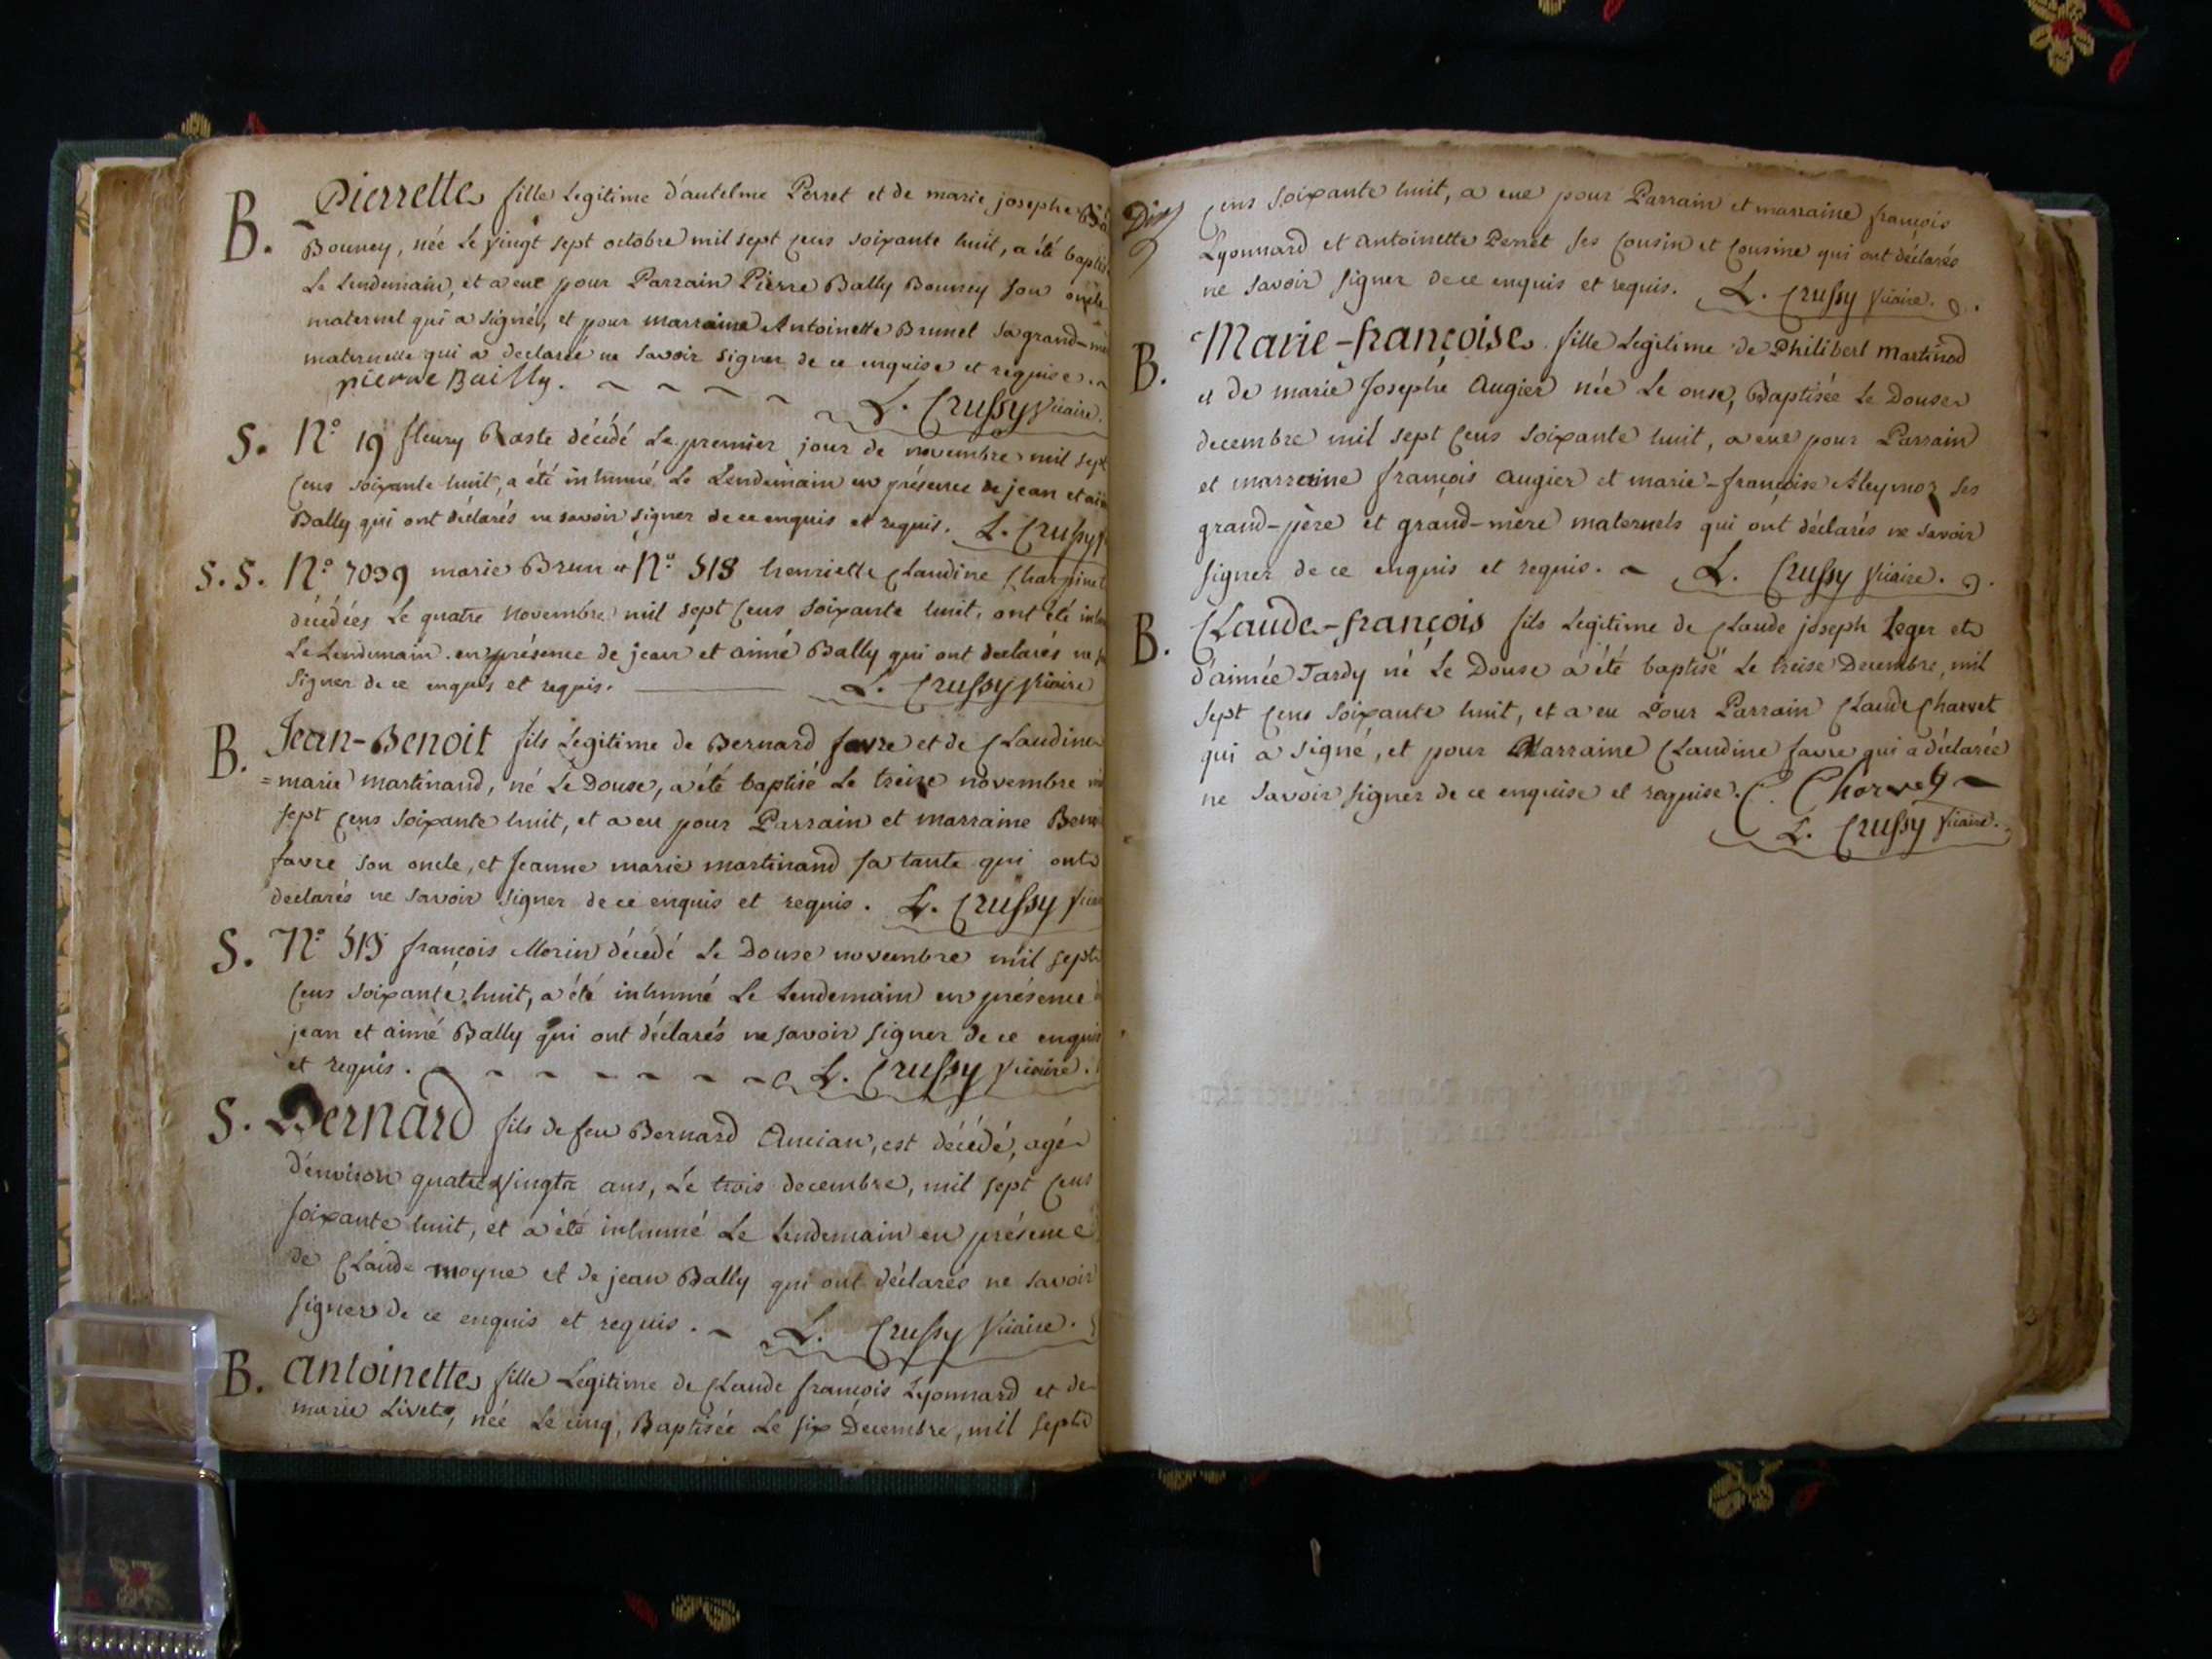 B. Pierrette fille Legitime d'antelme Perret et de marie josephe
Bouney, née Le vingt sept octobre mil sept cens soixante huit, a été baptis
Le Lendemain, et a eue pour Parrain Pierre Bally Bouney son oncle
maternel qui a signé, et pour marraine Antoinette Brunet sa grand-mè
maternelle qui a declareé ne savoir signer de ce enquise et requise.
pierre Bailly. L. Crussy Vicaire.
S. N.º 19 fleury Raste décédé Le premier jour de novembre mil sept
cens soixante huit, a été inhumé Le Lendemain en présence de jean et aim
Bally qui ont déclarés ne savoir signer de ce enquis et requis. L. Crussy V
S.S. N.º 7039 marie Brun et N.º 518 henriette Claudine Charpinet
décédées Le quatre Novembre mil sept cens soixante huit, ont été inhu
Le Lendemain en présence de jean et aimé Bally qui ont declarés ne
signer de ce enquis et requis. L. Crussy Vicaire
B. Jean-Benoit fils Legitime de Bernard favre et de Claudine
=marie martinand, né Le Douse, a été baptisé Le treize novembre mil
sept cens soixante huit, et a eu pour Parrain et marraine Bern
favre son oncle, et Jeanne marie martinand sa tante qui ont
declarés ne savoir signer de ce enquis et requis. L. Crussy Vicai
S. N.º 515 françois Morin décédé Le Douse novembre mil sept
cens soixante huit, a été inhumé Le Lendemain en présence
jean et aimé Bally qui ont déclarés ne savoir signer de ce enquis
et requis. L. Crussy Vicaire.
S. Bernard fils de feu Bernard Ancian, est décédé, agé
d'environ quatre vingts ans, Le trois decembre, mil sept cens
soixante huit, et a été inhumé Le Lendemain en présence
de Claude moyne et de jean Bally qui ont déclarés ne savoir
signer de ce enquis et requis. L. Crussy Vicaire.
B. Antoinette fille Legitime de Claude françois Lyonnard et de
marie Livet, née Le cinq, Baptisée Le six Decembre, mil sept
cens soixante huit, a eue pour Parrain et marraine françois
Lyonnard et Antoinette Perret ses Cousin et Cousine qui ont déclarés
ne savoir signer de ce enquis et requis. L. Crussy Vicaire.
B. Marie-françoise fille Legitime de Philibert Martinod
et de marie Josephe Augier née Le onse, Baptisée Le Douse
decembre mil sept cens soixante huit, a eue pour Parrain
et marraine françois Augier et marie-françoise Aleymoz ses
grand-père et grand-mère maternels qui ont déclarés ne savoir
signer de ce enquis et requis. L. Crussy Vicaire.
B. Claude-françois fils Legitime de Claude joseph Leger et
d'aimée Tardy né Le Douse a été baptisé Le treise Decembre, mil
sept cens soixante huit, et a eu Pour Parrain Claude Charvet
qui a signé, et pour Marraine Claudine favre qui a déclarée
ne savoir signer de ce enquise et requise. C. Charvet
L. Crussy Vicaire.